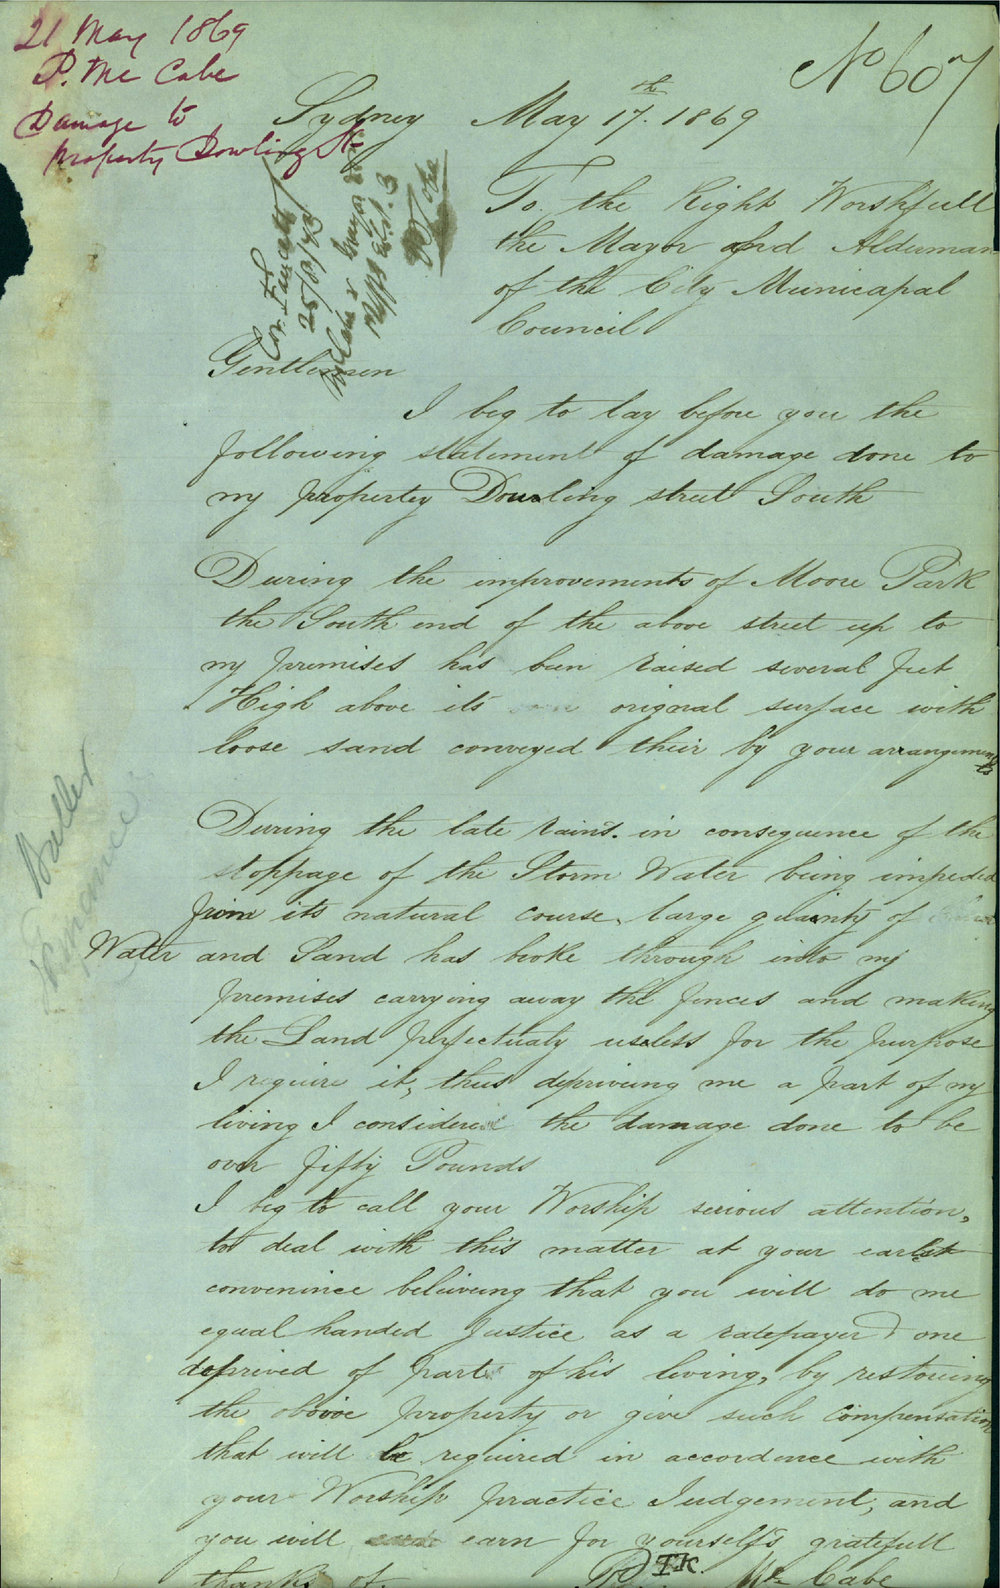 21 May 1869
P. Mc Cabe
Damage to
property Dowling St
No 607
Sydney May 17th. 1869
To. the Right Worshfull
the Mayor and Alderman
of the City Municapal
Council
25/5/
Gentlemen
I beg to lay before you the
following statement of damage done to
my propertey Dowling street South
During the improvements of Moore Park
the South end of the above street up to
my premises has been raised several feet
High above its orignal surface with
loose sand conveyed their by your arrangements
During the late rains. in consequence of the
stoppage of the Storm Water being impeded
from its natural course, large quainty of
Water and Sand has broke through into my
premises carrying away the fences and making
the Land perfectualy useless for the purpose
I require it, thus depriveing me a part of my
living I considere the damage done to be
over fifty Pounds
I beg to call your Worship serious attention,
to deal with this matter at your earlest
convenince beliveing that you will do me
equal handed Justice as a ratepayer & one
deprived of part of his living, by restoreing
the obove property or give such Compensation
that will be required in accordence with
your Worship practice Judgement, and
you will earn for yourselfs gratefull
thanks of.
P. Mc Cabe